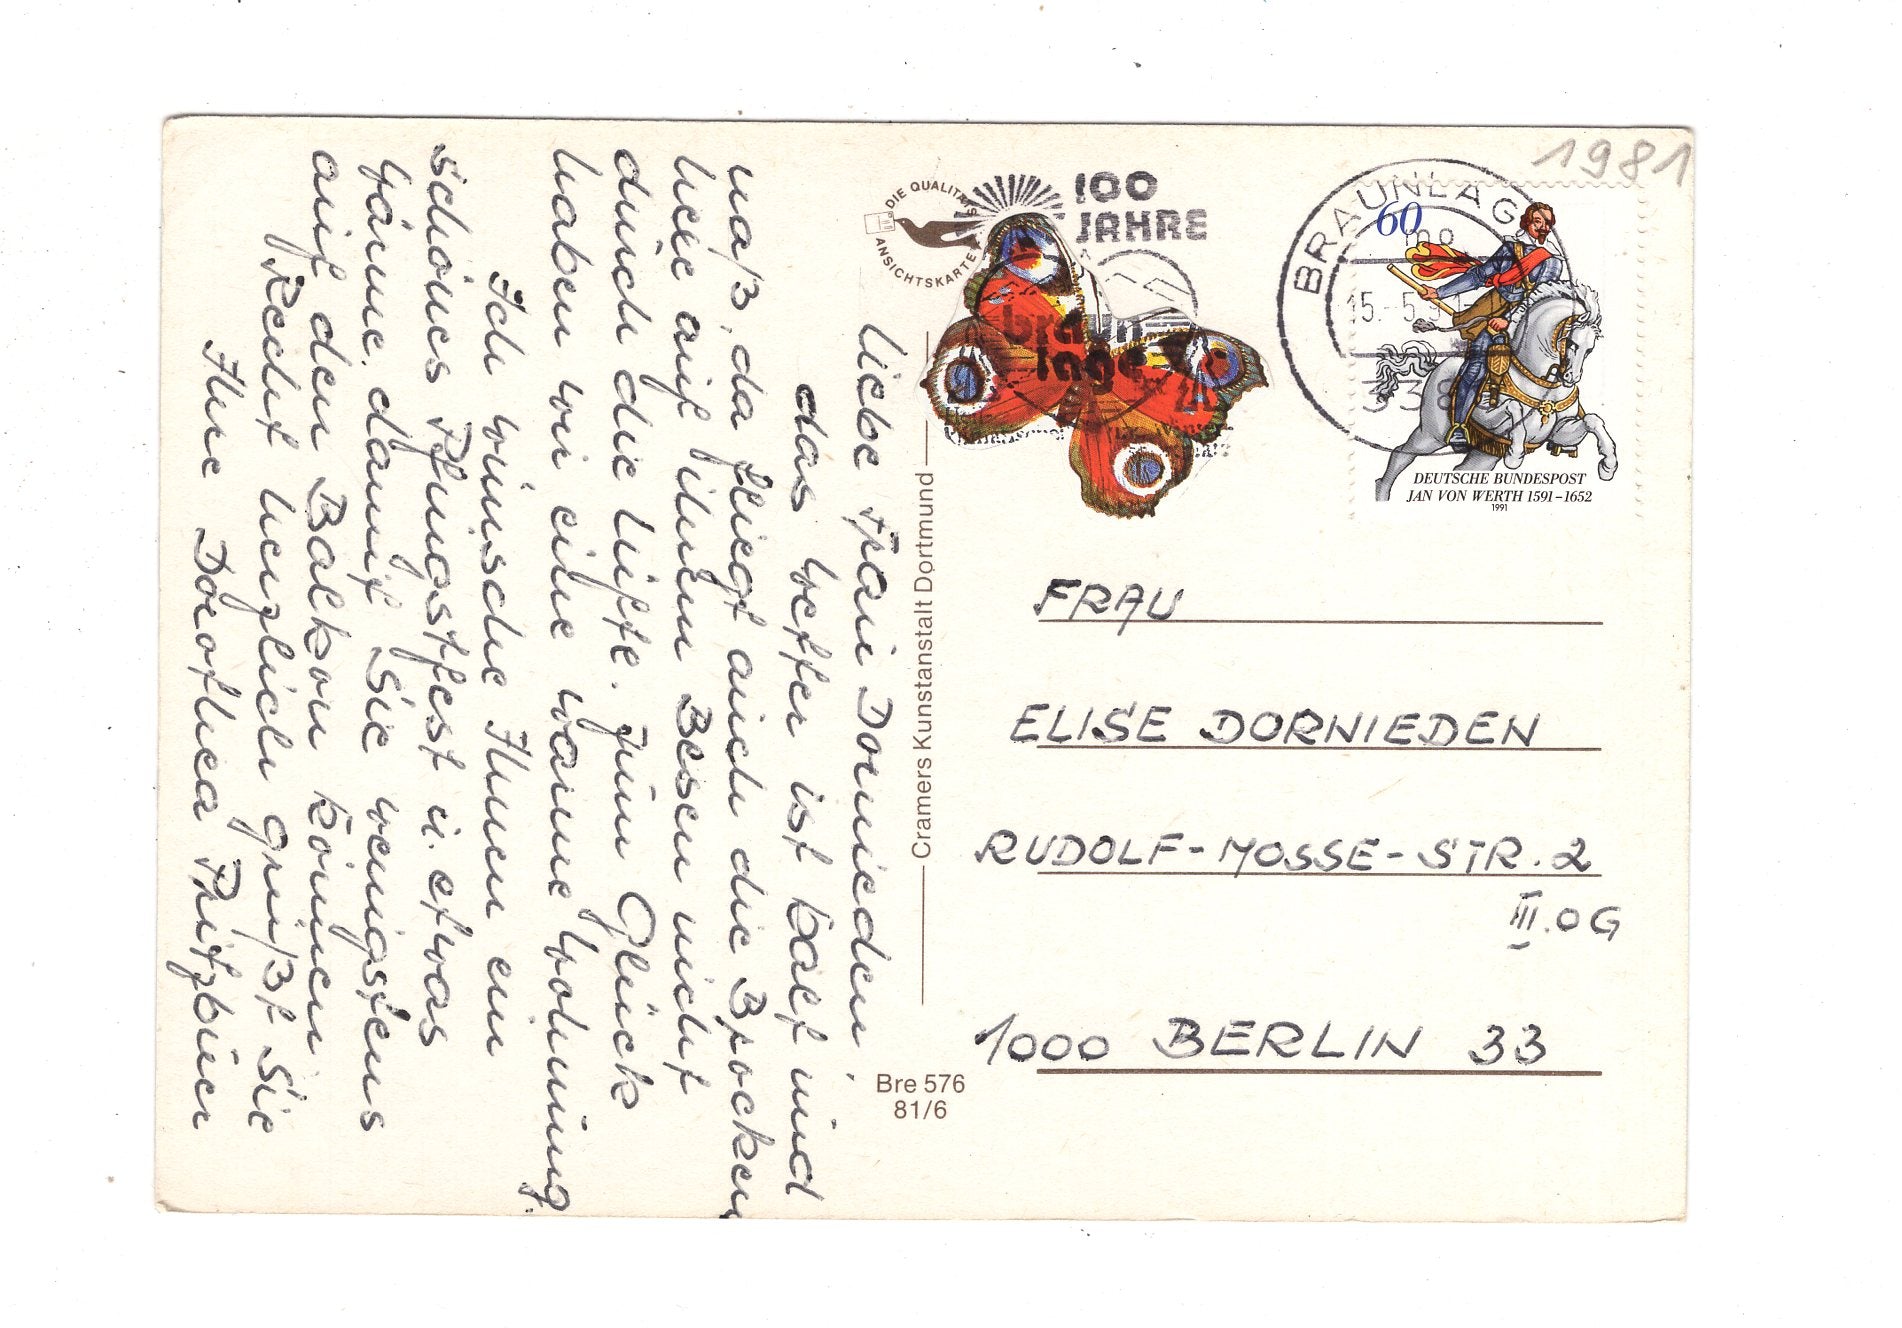 Liebe Frau Dornieden,
das Wetter ist kalt und
naß, da fliegt auch die Brocken
hexe auf ihrem Besen nicht
durch die Lüfte. Zum Glück
haben wir eine warme Wohnung.
Ich wünsche Ihnen ein
schönes Pfingstfest u. etwas
Wärme, damit Sie wenigstens
auf den Balkon können
Recht herzlich grüßt Sie
Ihre Dorothea
DIE QUALITÄTS
ANSICHTSKARTE
100
JAHRE
braun
lage
BRAUNLAGE
15.-5.9
338
1981
60
DEUTSCHE BUNDESPOST
JAN VON WERTH 1591–1652
1991
Cramers Kunstanstalt Dortmund
FRAU
ELISE DORNIEDEN
RUDOLF-MOSSE-STR. 2
III. OG
1000 BERLIN 33
Bre 576
81/6